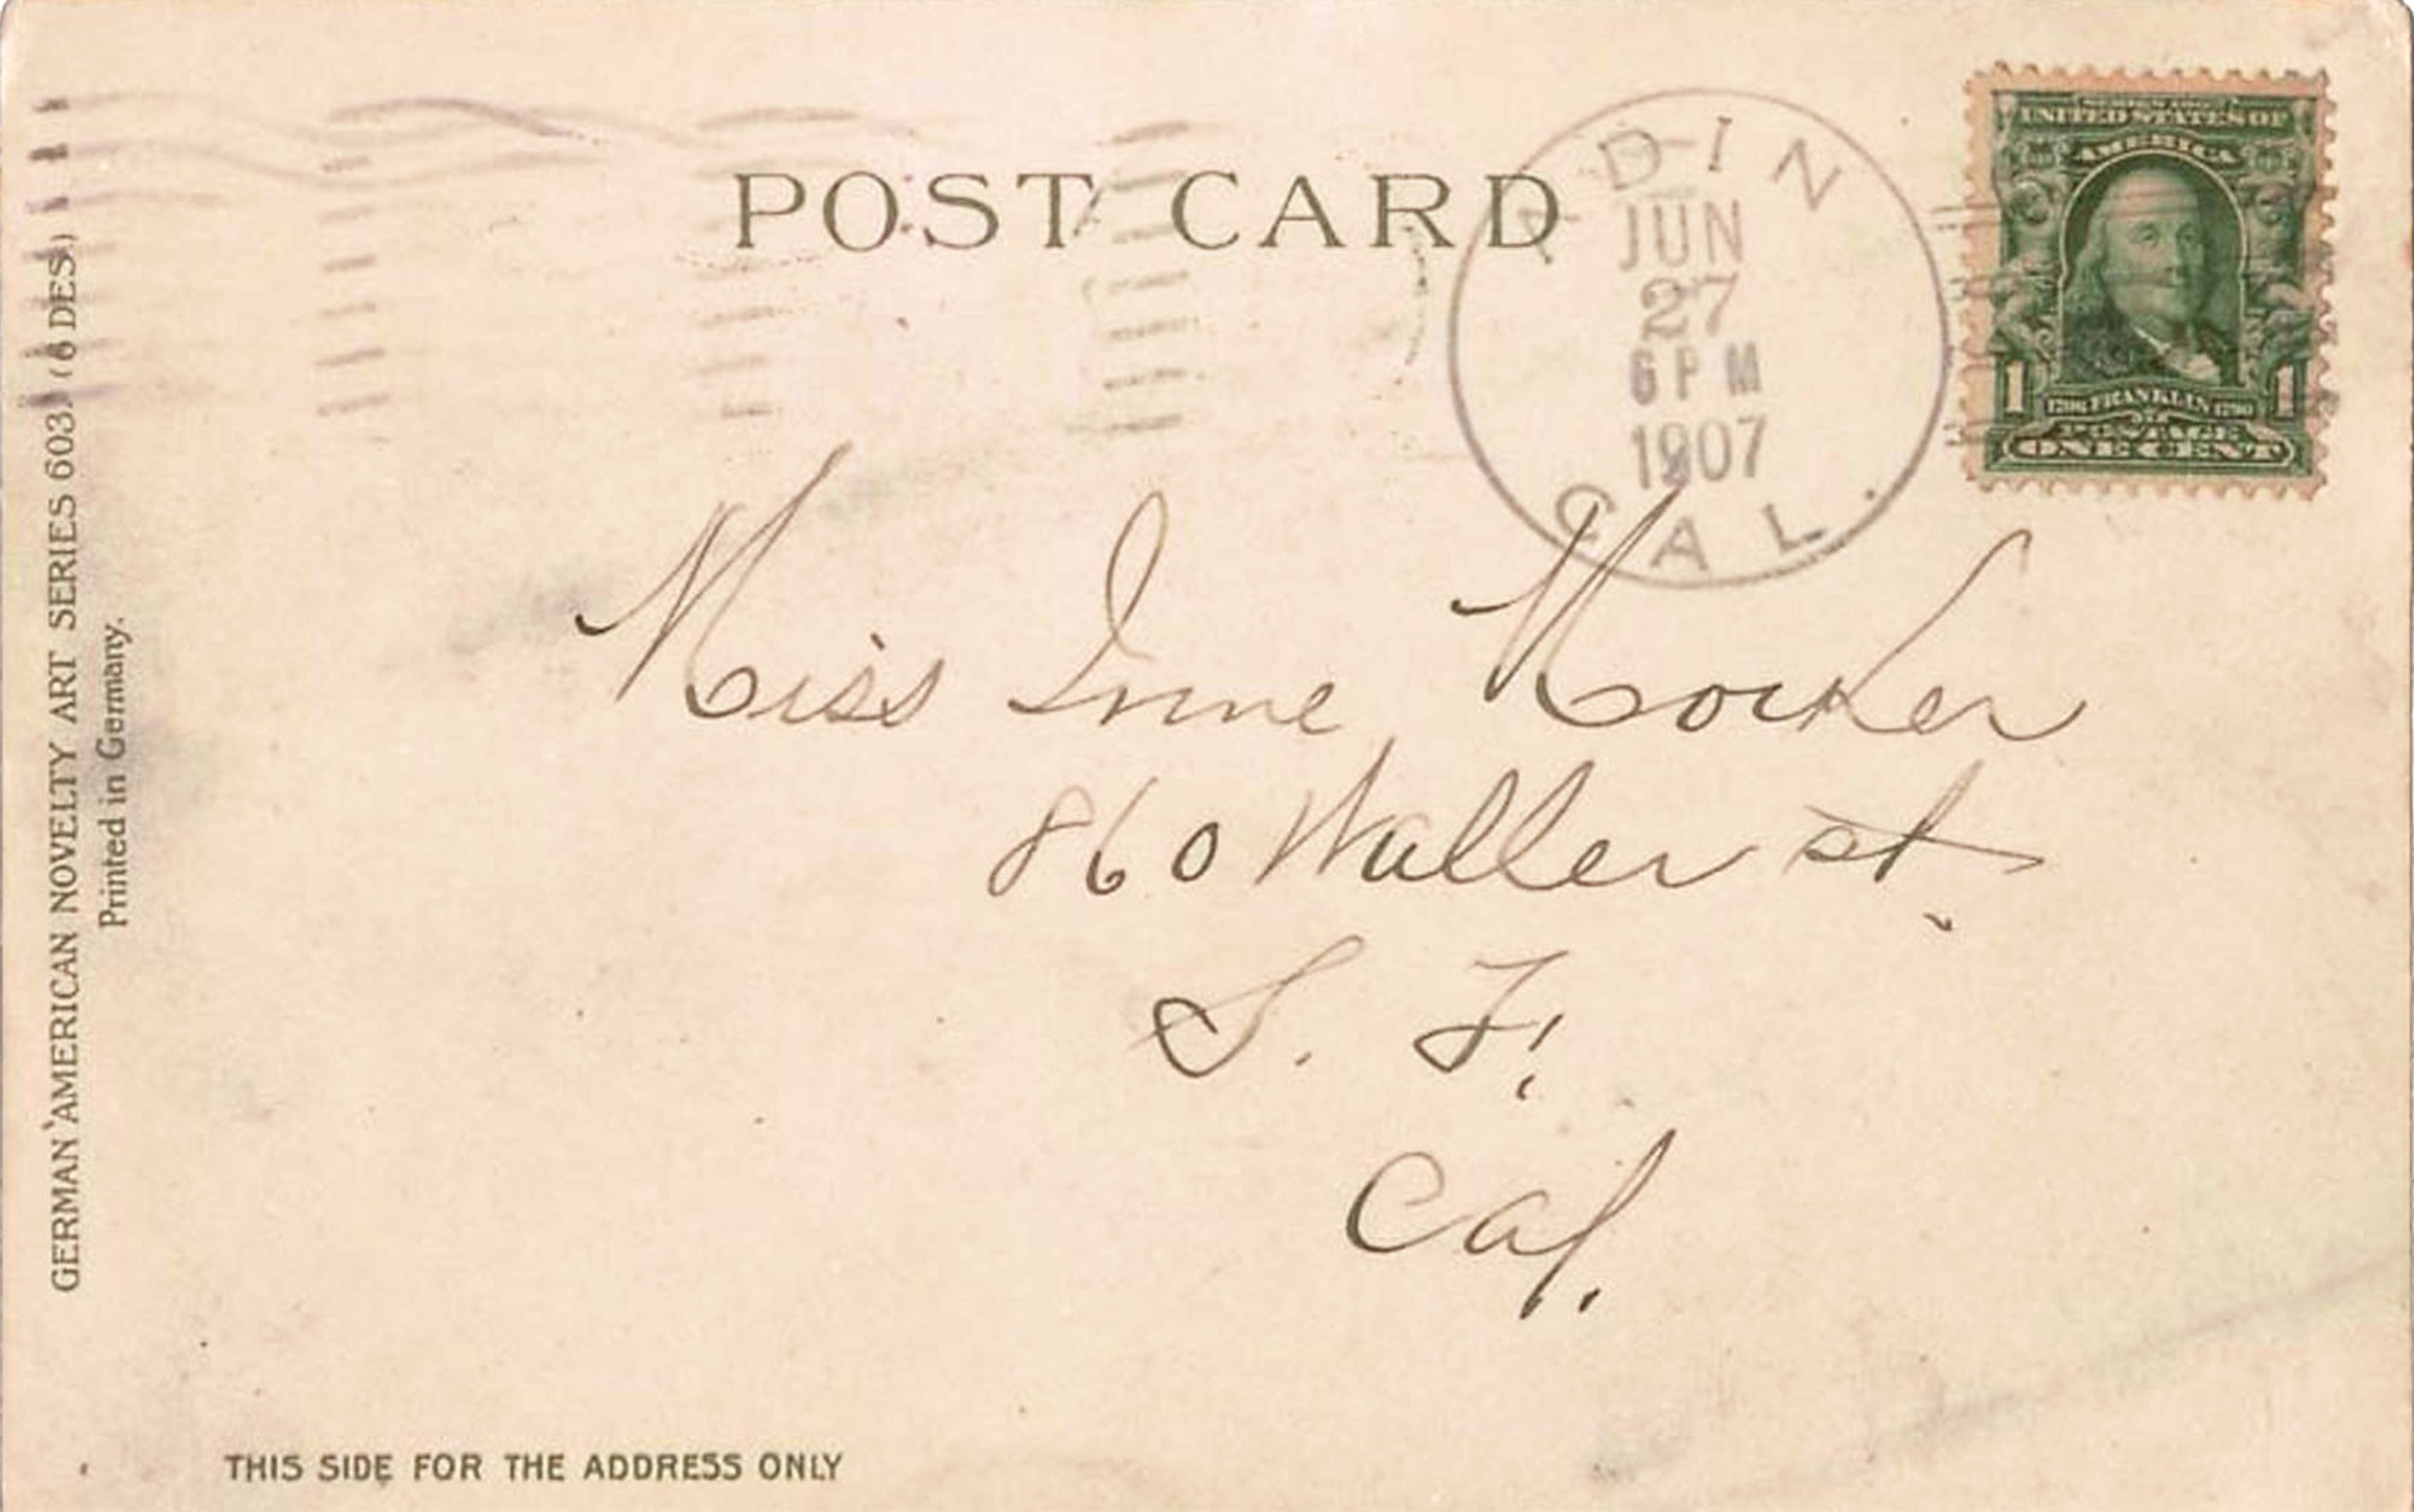 POST CARD
ADIN
JUN
27
6 PM
1907
CAL.
SERIES 1902
UNITED STATES OF
AMERICA
1 1706 FRANKLIN 1790 1
POSTAGE
ONE CENT
Miss Irene
860 Waller st.
S. F.
Cal.
GERMAN AMERICAN NOVELTY ART SERIES 603. (6 DES)
Printed in Germany.
THIS SIDE FOR THE ADDRESS ONLY